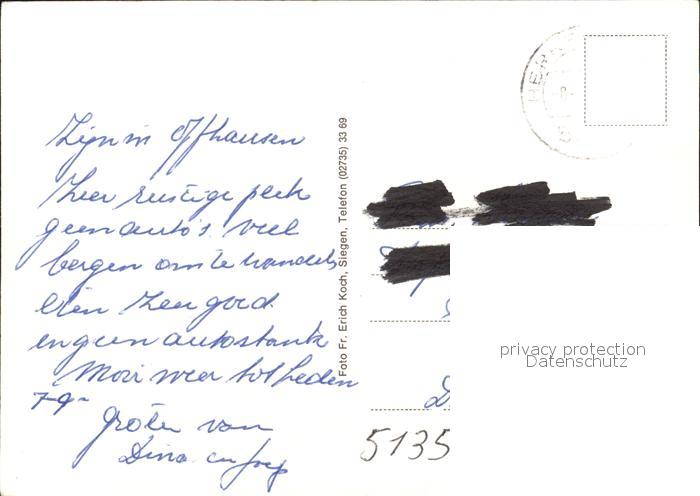 Zijn in Offhausen
Zeer rustige plek
geen auto's veel
bergen om te wandelen
Eten zeer goed
en geen autostank
Mooi weer tot heden
7-9-
Groten van
Dina en Joep
Foto Fr. Erich Koch, Siegen, Telefon (02735) 33 69
HER
5135
privacy protection
Datenschutz